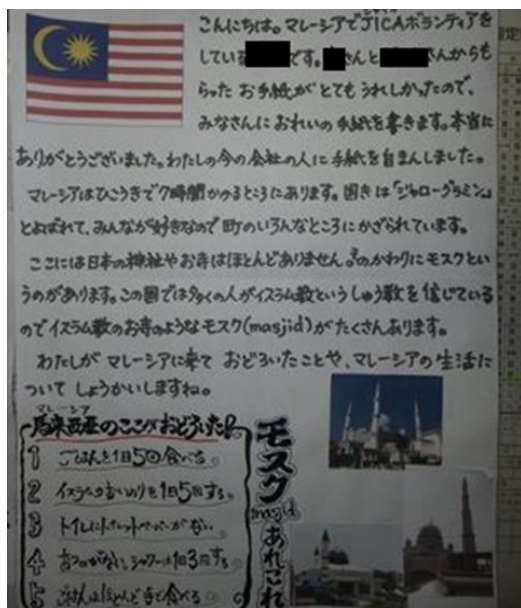 こんにちは。マレーシアでJICAボランティアを
している です。 さんと さんからも
らった お手紙が とても うれしかったので、
みなさんに おれいの 手紙を 書きます。本当に
ありがとうございました。わたしの今の会社の人に手紙を自まんしました。
マレーシアはひこうきで7時間かかるところにあります。国きは「ジャローグラミン」
とよばれて、みんなが好きなので 町のいろんなところにかざられています。
ここには日本の神社やお寺はほとんどありません。そのかわりにモスクとい
うのがあります。この国では多くの人がイスラム教というしゅう教を信じている
のでイスラム教のお寺のようなモスク(masjid)がたくさんあります。
わたしが マレーシアに来て おどろいたことや、マレーシアの生活に
ついて しょうかいしますね。
マレーシア
馬来西亜のここがおどろいた!
1 ごはんを1日5回食べる。
2 イスラムのおいのりを1日5回する。
3 トイレにトイレットペーパーがない。
4 おフロがない。シャワーは1日3回する
5 ごはんはほとんど手で食べる。
モスク
masjid
あれこれ